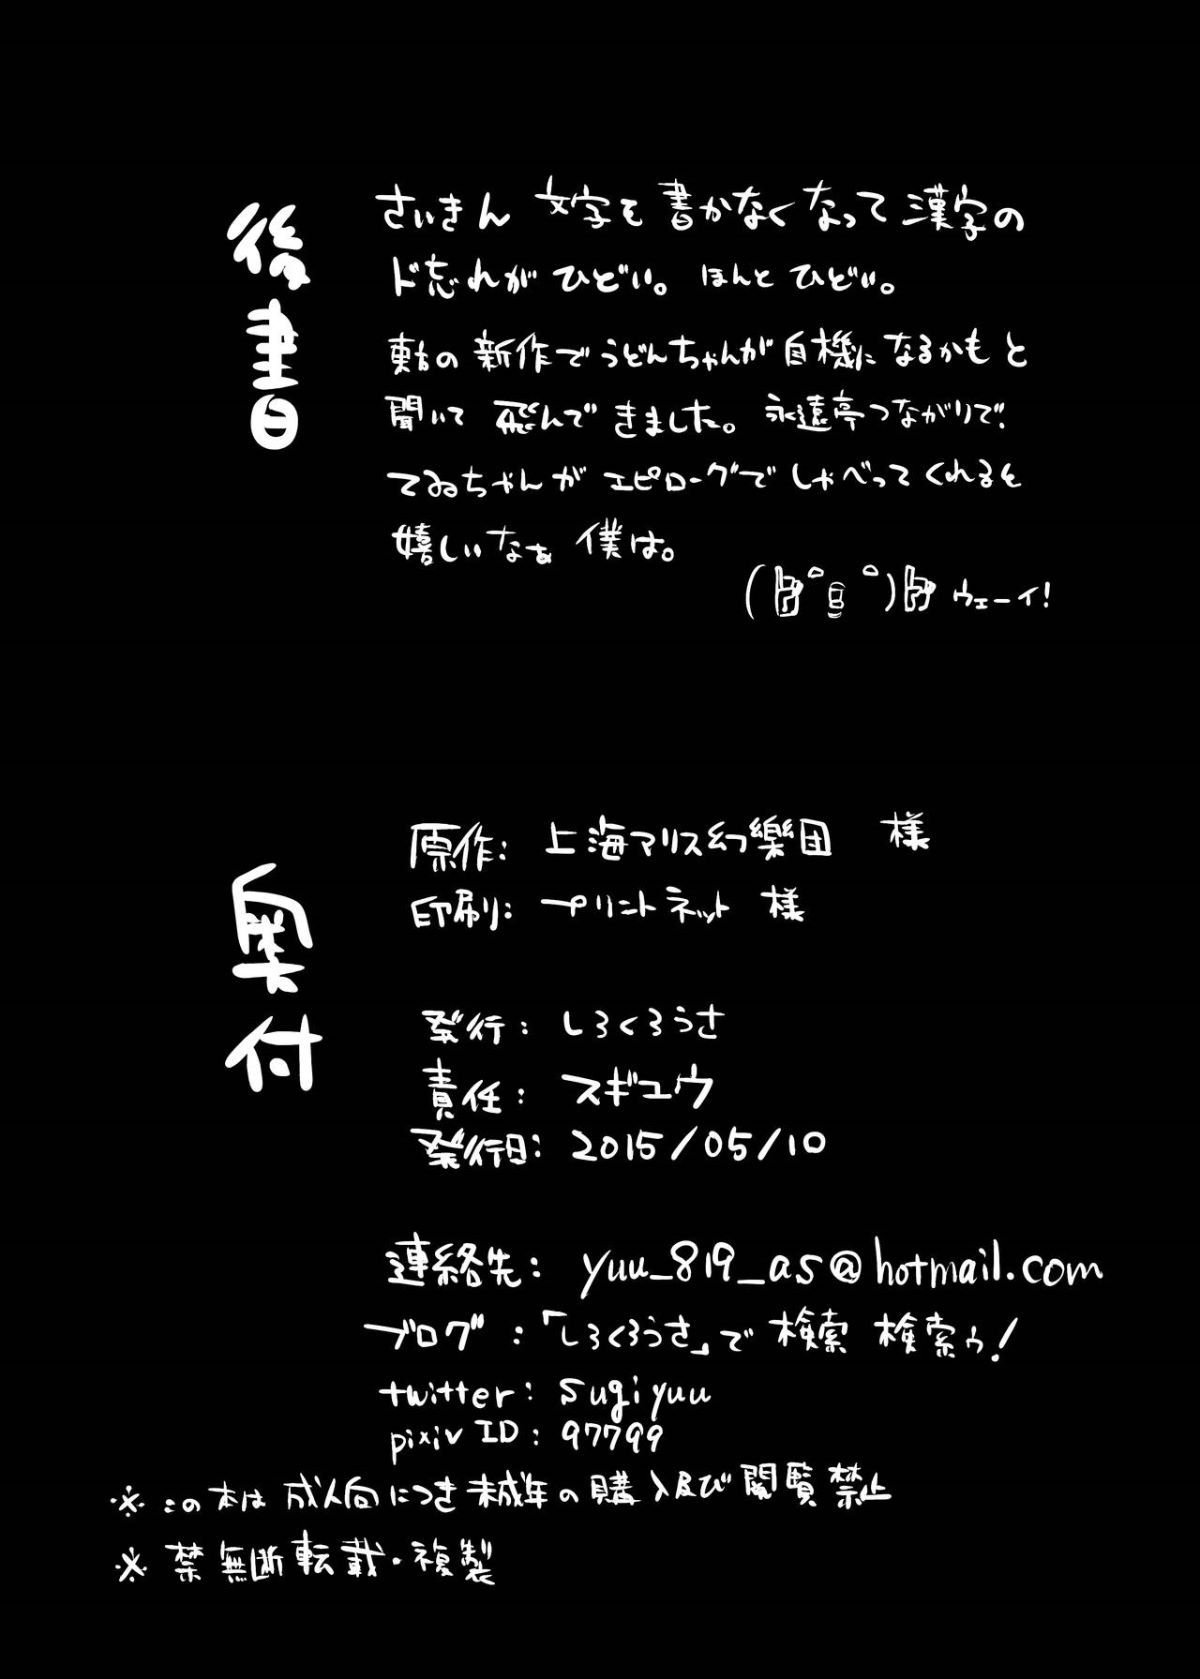 後書
さいきん 文字を書かなくなって漢字の
ド忘れがひどい。ほんとひどい。
東方の新作でうどんちゃんが自機になるかもと
聞いて飛んできました。永遠亭つながりで
てゐちゃんがエピローグでしゃべってくれると
嬉しいなぁ 僕は。
ウェーイ!
奥付
原作: 上海アリス幻樂団 様
印刷: プリントネット 様
発行: しろくろうさ
責任: スギユウ
発行日: 2015/05/10
連絡先: yuu_819_as@hotmail.com
ブログ:「しろくろうさ」で検索 検索ゥ!
twitter: sugiyuu
pixiv ID: 97799
※この本は成人向につき未成年の購入及び閲覧禁止
※禁無断転載・複製